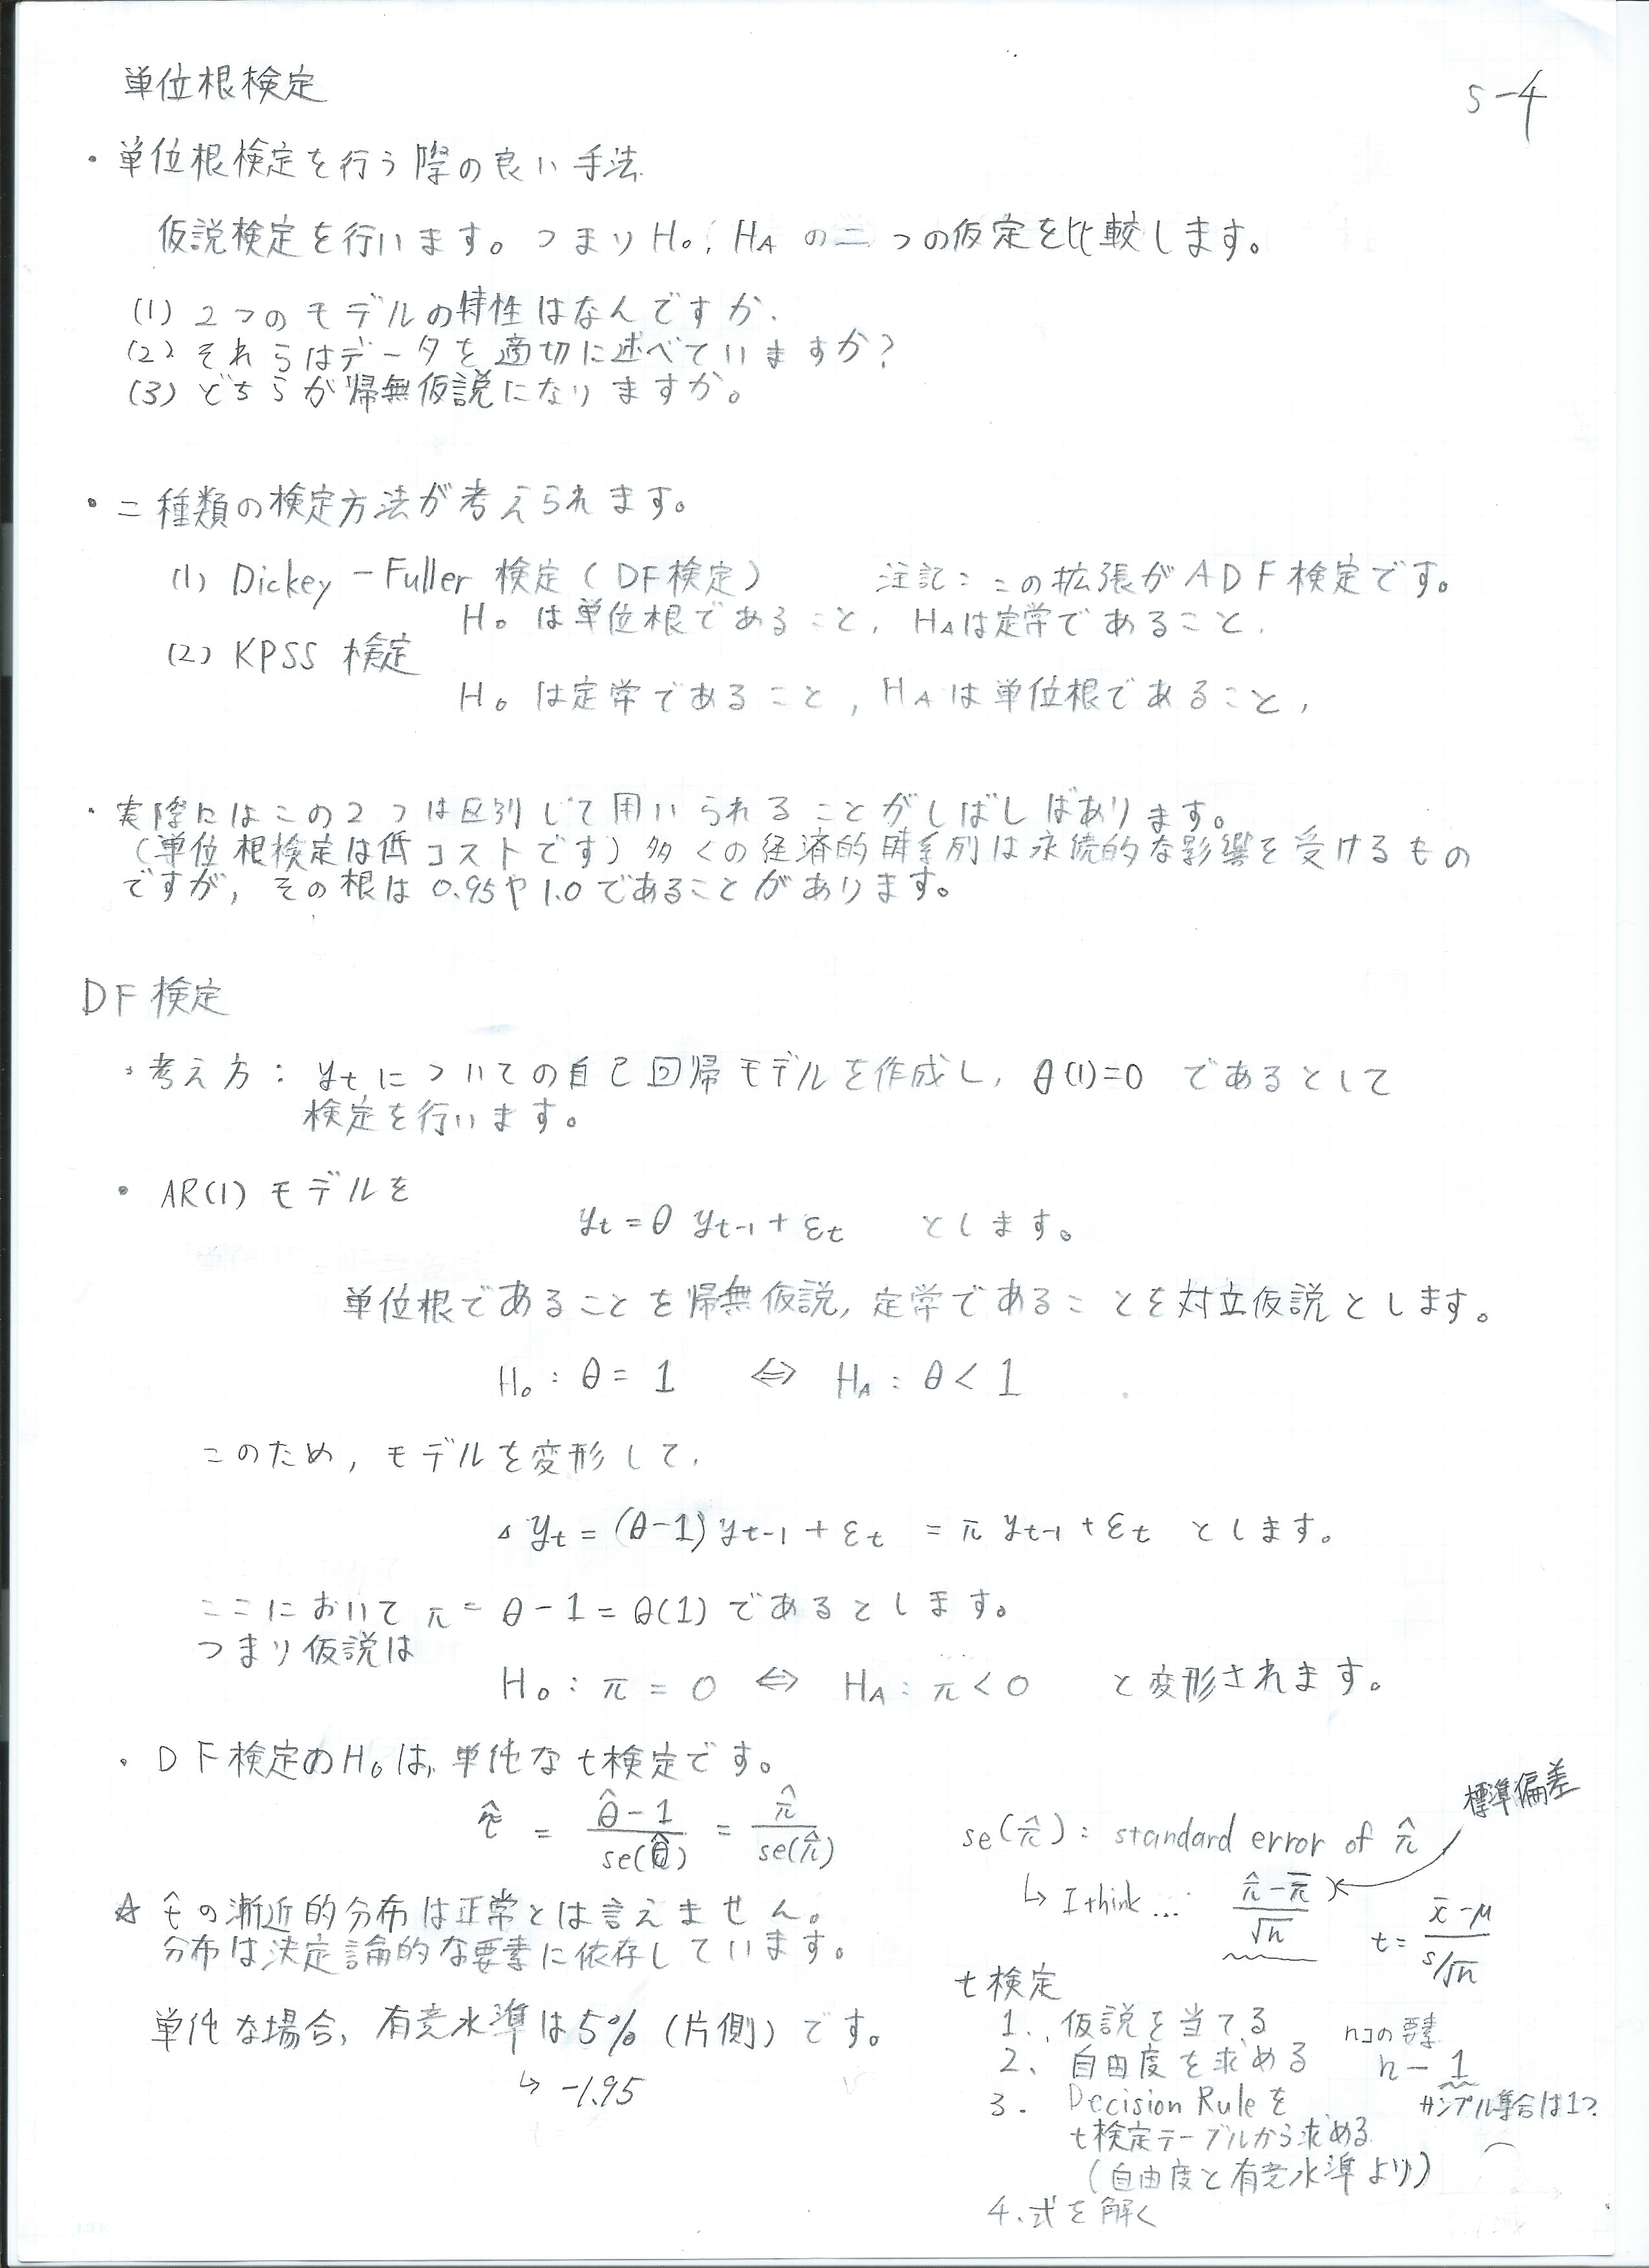 単位根検定
5-4
・単位根検定を行う際の良い手法
仮説検定を行います。つまりH₀, H_A の二つの仮定を比較します。
(1) 2つのモデルの特性はなんですか.
(2) それらはデータを適切に述べていますか?
(3) どちらが帰無仮説になりますか。
・二種類の検定方法が考えられます。
(1) Dickey-Fuller 検定 (DF検定) 注記:この拡張がADF検定です。
H₀ は単位根であること, H_Aは定常であること,
(2) KPSS 検定
H₀ は定常であること, H_A は単位根であること,
・実際にはこの2つは区別して用いられることがしばしばあります。
(単位根検定は低コストです)多くの経済的時系列は永続的な影響を受けるもの
ですが, その根は0.95や1.0であることがあります。
DF 検定
・考え方: y_t についての自己回帰モデルを作成し, θ(1)=0 であるとして
検定を行います。
・AR(1) モデルを
y_t = θ y_{t-1} + ε_t とします。
単位根であることを帰無仮説, 定常であることを対立仮説とします。
H₀ : θ = 1 ⇔ H_A : θ < 1
このため, モデルを変形して,
Δy_t = (θ-1) y_{t-1} + ε_t = π y_{t-1} + ε_t とします。
ここにおいて π = θ - 1 = θ(1) であるとします。
つまり仮説は
H₀ : π = 0 ⇔ H_A : π < 0 と変形されます。
・DF検定のH₀は, 単純なt検定です。
= (θ̂ - 1) / se(θ̂) = π̂ / se(π̂)
☆ t̂の漸近的分布は正常とは言えません。
分布は決定論的な要素に依存しています。
単純な場合, 有意水準は5% (片側) です。
↳ -1.95
標準偏差
se(π̂) : standard error of π̂
↳ I think ... (π̂ - π̄) / √n
t = (x̄ - μ) / (s/√n)
t検定
1. 仮説を当てる
2、自由度を求める
nコの要素
n - 1
サンプル集合は1つ
3. Decision Ruleを
t検定テーブルから求める
(自由度と有意水準より)
4. 式を解く